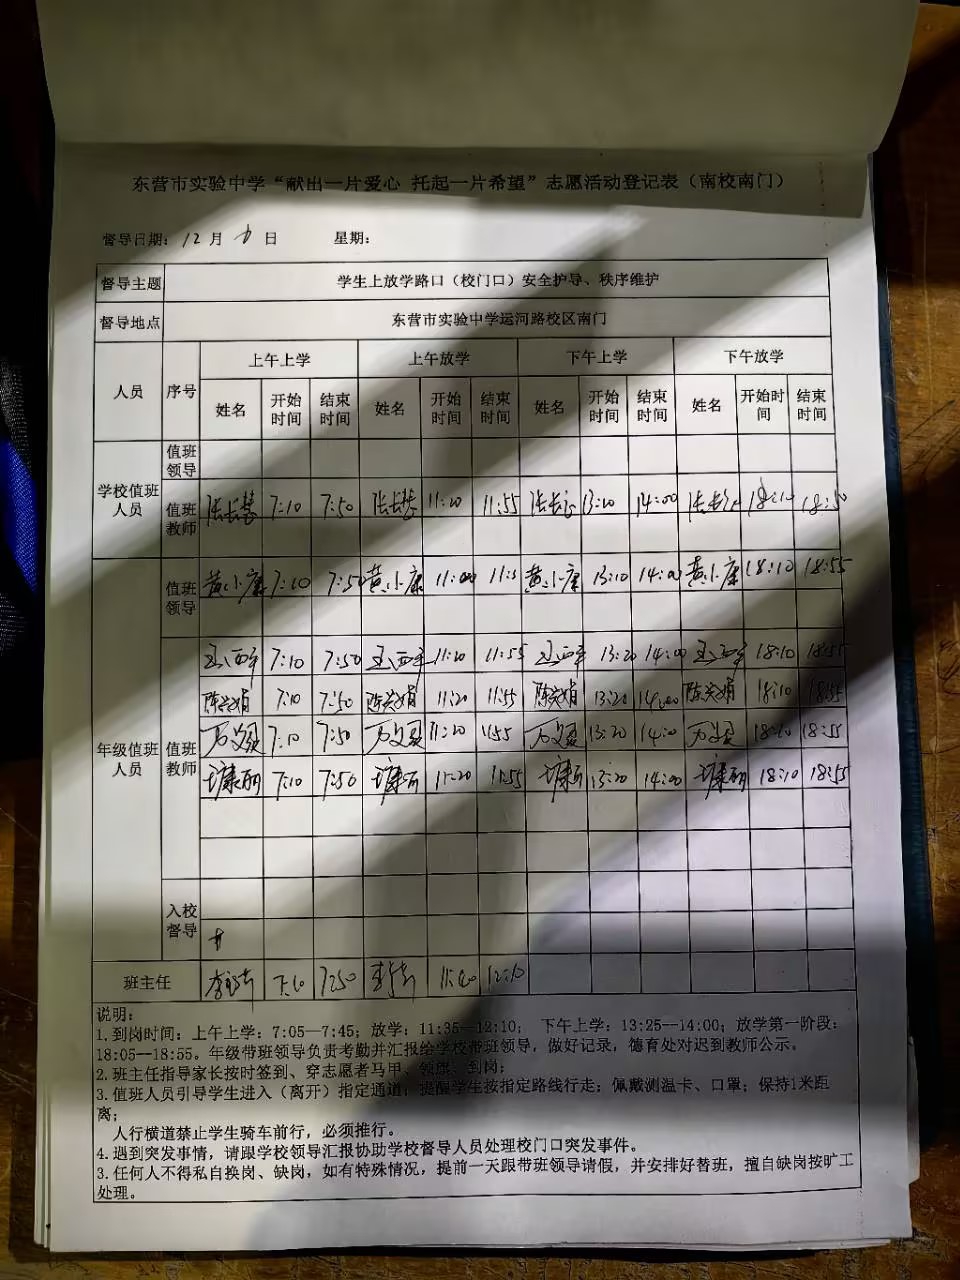 东营市实验中学“献出一片爱心 托起一片希望”志愿活动登记表（南校南门）
督导日期：12月 日 星期：
督导主题 学生上放学路口（校门口）安全护导、秩序维护
督导地点 东营市实验中学运河路校区南门
人员 序号 上午上学 上午放学 下午上学 下午放学
姓名 开始时间 结束时间 姓名 开始时间 结束时间 姓名 开始时间 结束时间 姓名 开始时间 结束时间
学校值班人员 值班领导
值班教师 7:10 7:50 11:20 11:55 13:20 14:00 18:10 18:50
年级值班人员 值班领导 黄小康 7:10 7:50 黄小康 11:00 黄小康 13:10 14:00 黄小康 18:10 18:55
值班教师 7:10 7:50 11:20 11:55 13:20 14:00 18:10 18:55
7:10 7:50 11:20 11:55 13:20 14:00 18:10 18:55
7:10 7:50 11:20 13:20 18:10 18:55
7:10 7:50 11:20 11:55 13:20 14:00 18:10 18:55
入校督导
班主任 7:10 7:50 11:40 12:10
说明：
1. 到岗时间：上午上学：7:05—7:45；放学：11:35—12:10； 下午上学：13:25—14:00；放学第一阶段：
18:05--18:55。年级带班领导负责考勤并汇报给学校带班领导，做好记录，德育处对迟到教师公示。
2. 班主任指导家长按时签到、穿志愿者马甲、领旗、到岗；
3. 值班人员引导学生进入（离开）指定通道；提醒学生按指定路线行走；佩戴测温卡、口罩；保持1米距
离；
人行横道禁止学生骑车前行，必须推行。
4. 遇到突发事情，请跟学校领导汇报协助学校督导人员处理校门口突发事件。
3. 任何人不得私自换岗、缺岗，如有特殊情况，提前一天跟带班领导请假，并安排好替班，擅自缺岗按旷工
处理。